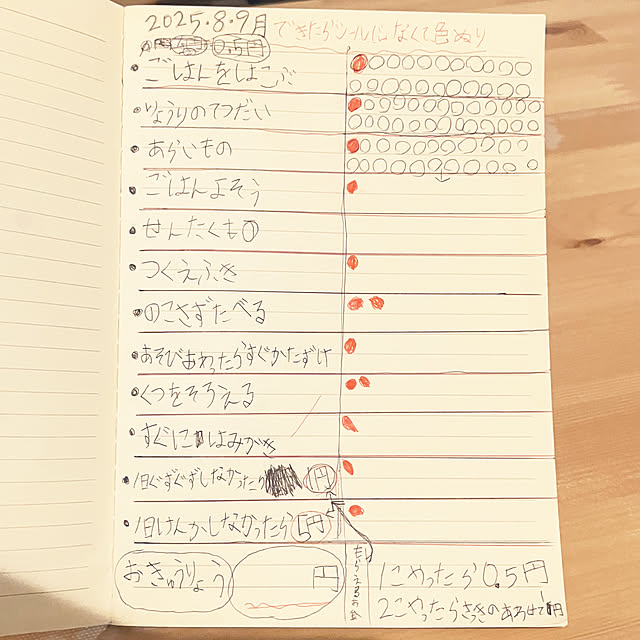 2025.8.9月
できたらシールじゃなくて色ぬり
0.5円
・ごはんをはこぶ
・りょうりのてつだい
・あらいもの
・ごはんよそう
・せんたくもの
・つくえふき
・のこさずたべる
・あそびおわったらすぐかたずけ
・くつをそろえる
・すぐにはみがき
・1日ぐずぐずしなかったら 円
・1日けんかしなかったら5円
おきゅうりょう 円
もらえるお金
1こやったら0.5円
2こやったらさっきのあわせて1円